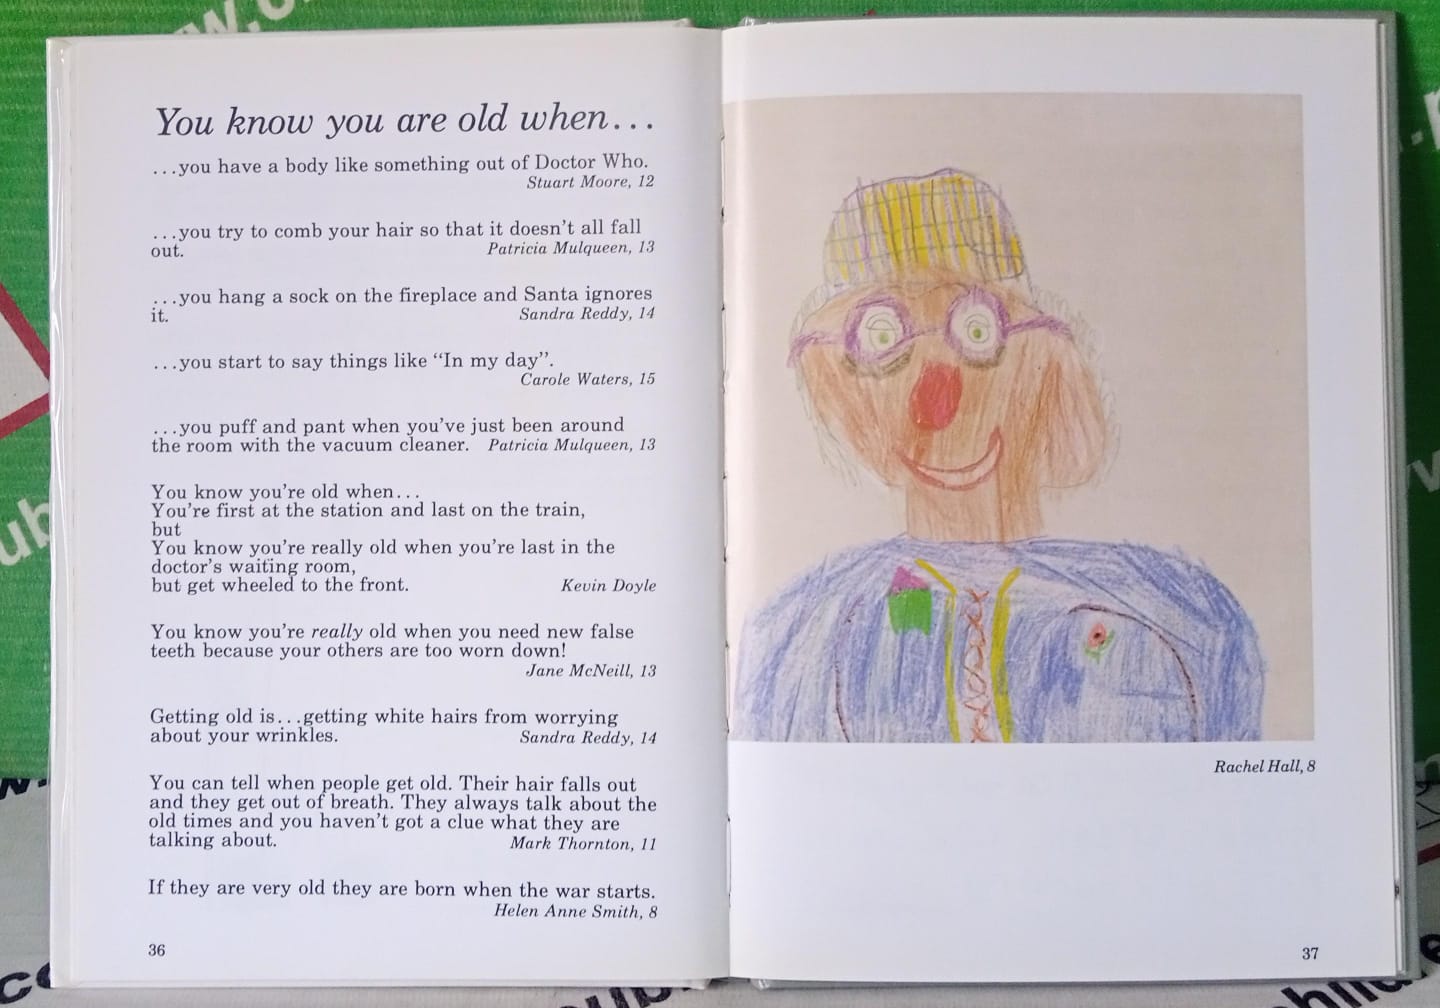 You know you are old when...
...you have a body like something out of Doctor Who.
Stuart Moore, 12
...you try to comb your hair so that it doesn't all fall
out. Patricia Mulqueen, 13
...you hang a sock on the fireplace and Santa ignores
it. Sandra Reddy, 14
...you start to say things like “In my day”.
Carole Waters, 15
...you puff and pant when you've just been around
the room with the vacuum cleaner. Patricia Mulqueen, 13
You know you're old when...
You're first at the station and last on the train,
but
You know you're really old when you're last in the
doctor's waiting room,
but get wheeled to the front. Kevin Doyle
You know you're really old when you need new false
teeth because your others are too worn down!
Jane McNeill, 13
Getting old is...getting white hairs from worrying
about your wrinkles. Sandra Reddy, 14
You can tell when people get old. Their hair falls out
and they get out of breath. They always talk about the
old times and you haven't got a clue what they are
talking about. Mark Thornton, 11
If they are very old they are born when the war starts.
Helen Anne Smith, 8
36
Rachel Hall, 8
37